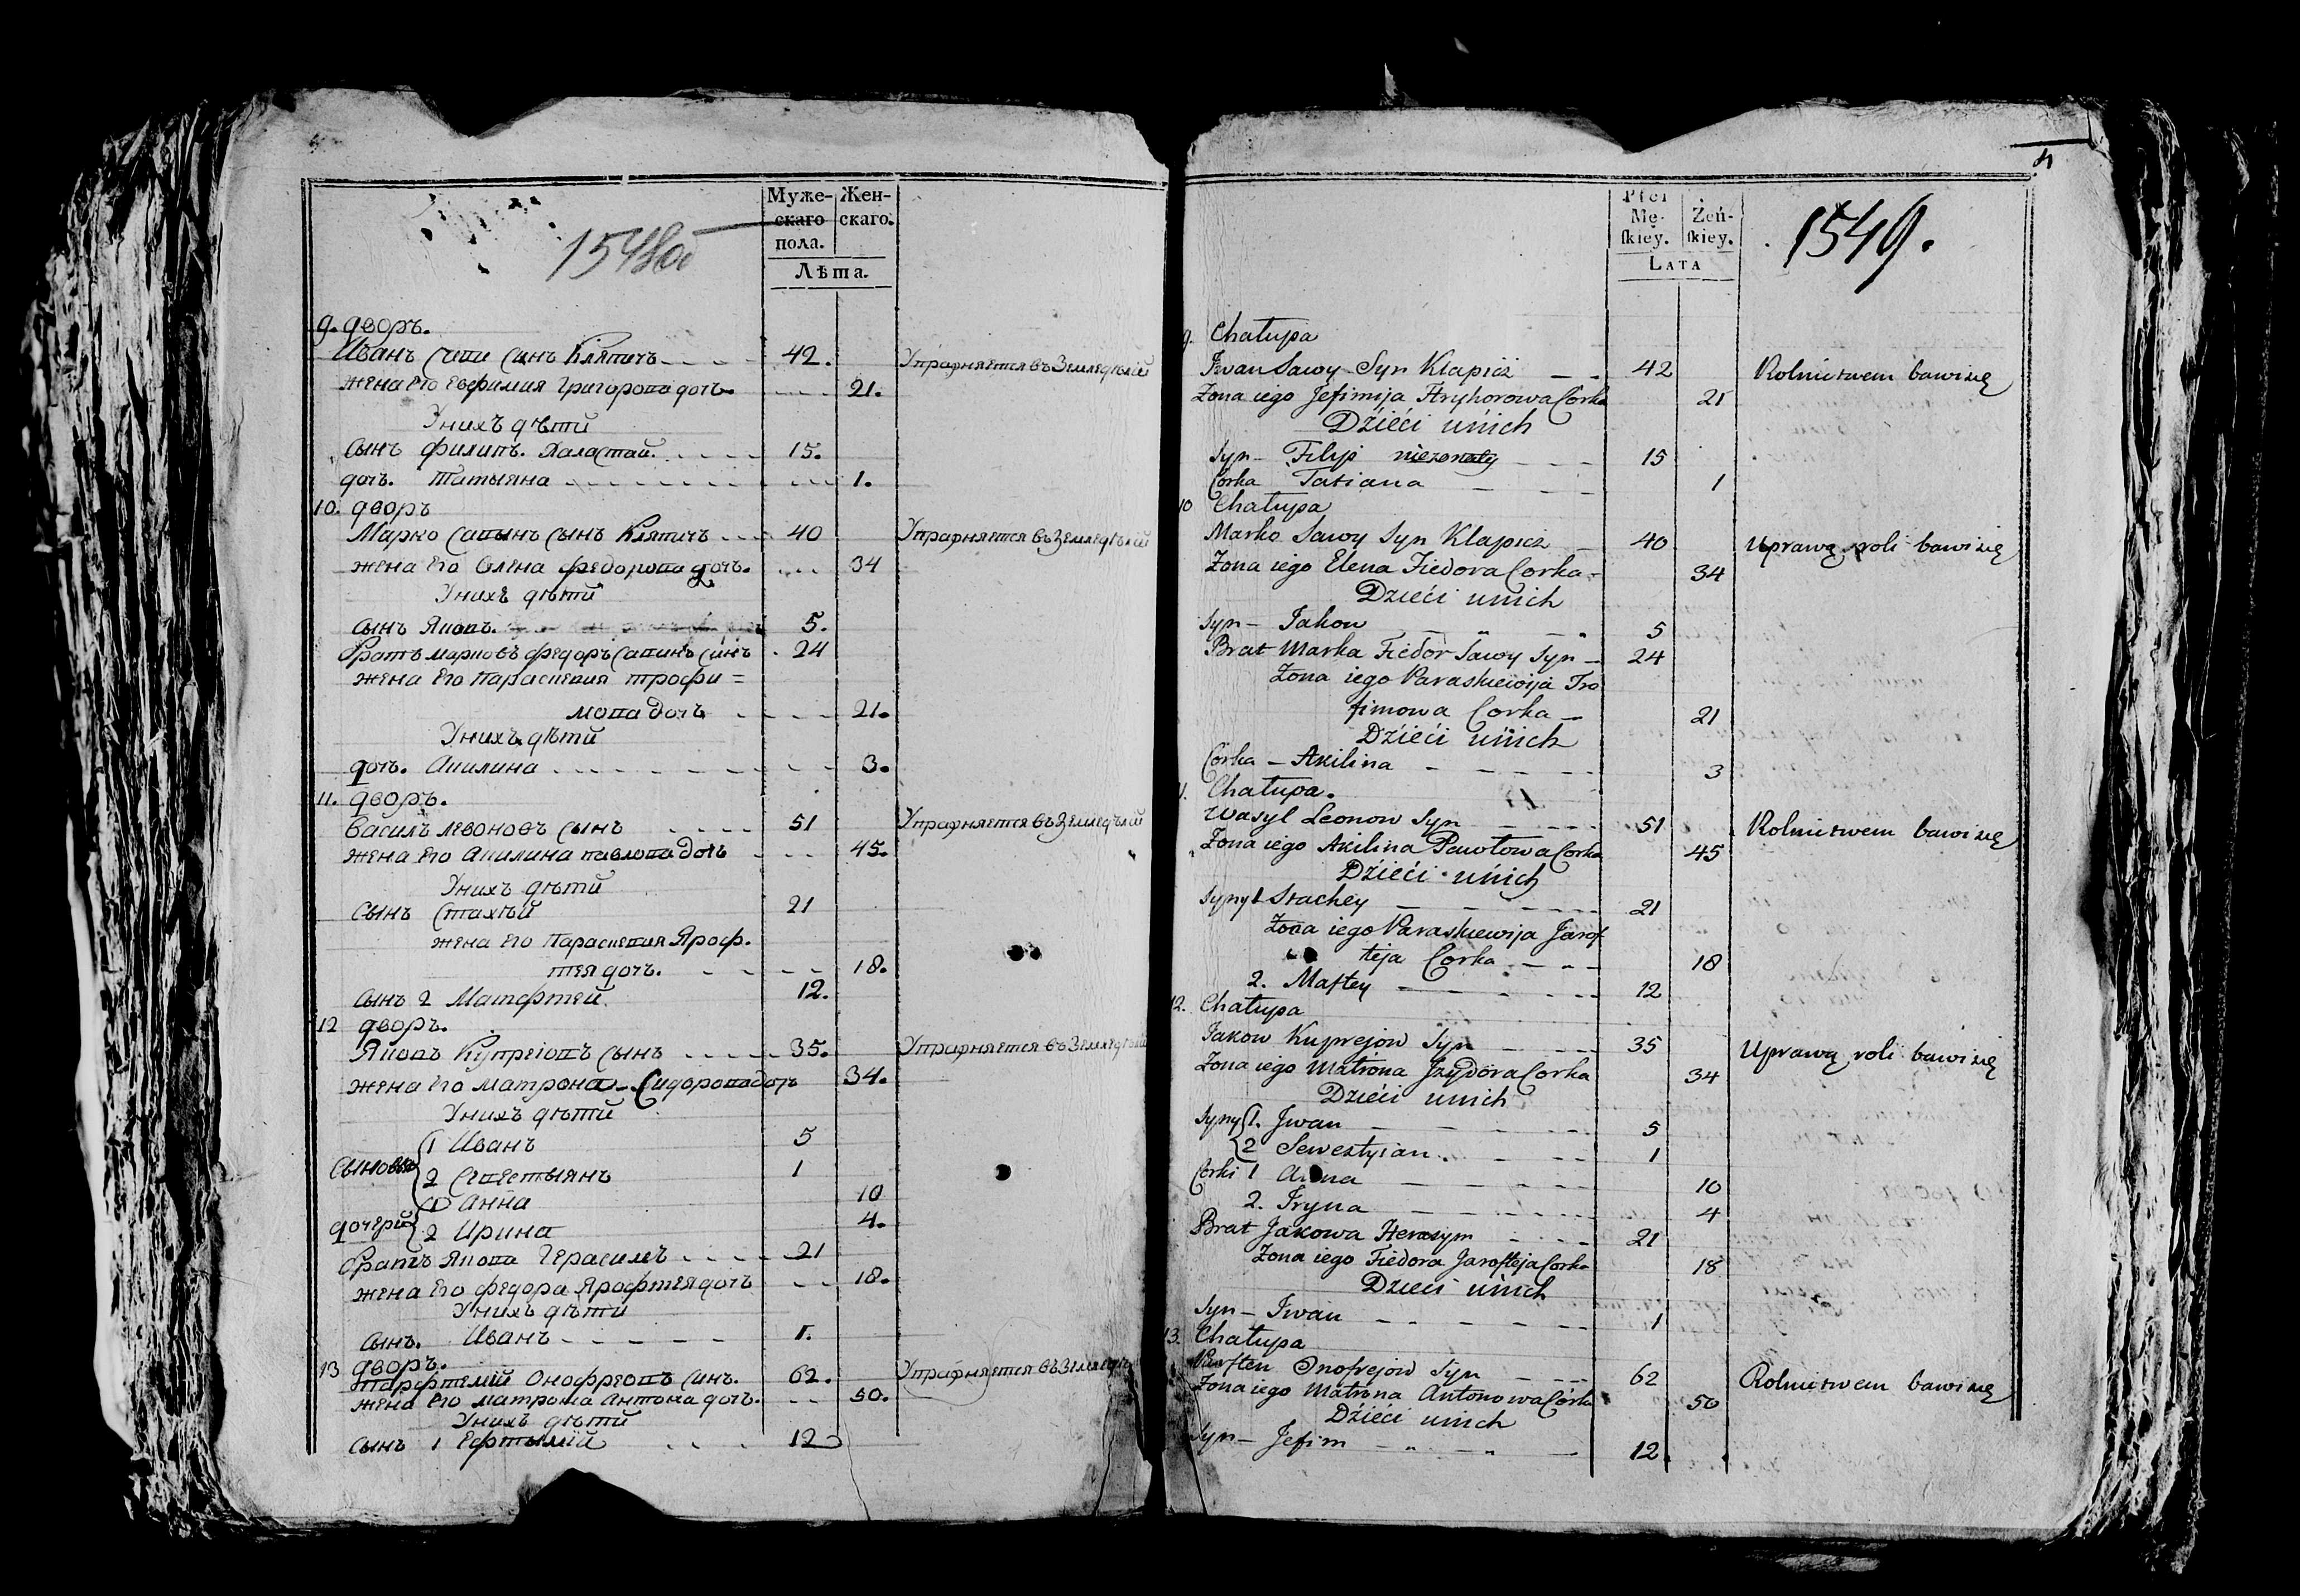 1548об
Муже-
скаго
пола.
Жен-
скаго.
Лѣта.
9. дворъ.
Иванъ Савы Сынъ Кляпичъ 42. Упражняется въ Земледѣлій
жена Его Евфимия Григорова дочь 21.
Унихъ дѣти
Сынъ Филипъ. Халастай. 15.
дочь. Татыяна 1.
10. дворъ
Марко Савынъ Сынъ Кляпичъ 40 Упражняется въ Земледѣлій
жена Его Олена Федорова дочь. 34
Унихъ дѣти
Сынъ Яковъ. 5.
Братъ марковъ Федоръ Савинъ Синъ 24
жена Его Параскевия трофи=
мова дочь 21.
Унихъ дѣти
дочь. Акилина 3.
11. дворъ.
Василъ левоновъ Сынъ 51 Упражняется въ Земледѣлій
жена Его Акилина павлова дочь 45.
Унихъ дѣти
Сынъ Стахѣй 21
жена Его Параскевия Яроф.
тея дочь. 18.
Сынъ 2 Матфтей. 12.
12 дворъ.
Яковъ Купреіовъ Сынъ 35. Упражняется въ Земледѣлій
жена Его матрона Сидорова дочь 34.
Унихъ дѣти
Сыновья 1 Иванъ 5
2 Савестыянъ 1
дочерй 1 Анна 10
2 Ирина 4.
Братъ Якова Герасимъ 21
жена Его Федора Ярофтея дочь 18.
Унихъ дѣти
Сынъ. Иванъ 1.
13 дворъ.
Парфтелій Онофреовъ Синъ. 62. Упражняется въ Земледѣлій
жена Его матрона Антона дочь. 50.
Унихъ дѣти
Сынъ 1 Ефтымій 12
4
1549.
Płci
Mę-
ſkiey.
Żeń-
ſkiey.
LATA
9. Chałupa
Iwan Sawy Syn Klapicz 42 Rolnictwem bawi się
Zona iego Jefimija Hryhorowa Corka 21
Dzieći unich
Syn – Filip niezonaty 15
Corka Tatiana 1
10 Chałupa
Marko Sawy Syn Klapicz 40 Uprawą roli bawi się
Zona iego Elena Fiedora Corka 34
Dzieći unich
Syn – Jakow 5
Brat Marka Fiedor Sawy Syn 24
Zona iego Paraskiewija Tro
fimowa Corka 21
Dzieći unich
Corka – Akilina 3
11. Chałupa.
Wasyl Leonow Syn 51 Rolnictwem bawi się
Zona iego Akilina Pawłowa Corka 45
Dzieći unich
Syny 1 Stachey 21
Zona iego Paraskiewija Jarof
teja Corka 18
2. Maftey 12
12. Chałupa
Jakow Kuprejow Syn 35 Uprawą roli bawi się
Zona iego Matrona Jzydora Corka 34
Dzieći unich
Syny 1. Jwan 5
2 Sewestyian. 1
Corki 1 Anna 10
2. Iryna 4
Brat Jakowa Herasym 21
Zona iego Fiedora Jarofteja Corka 18
Dzieci unich
Syn – Iwan 1
13. Chałupa
Parften Onofrejow Syn 62 Rolnictwem bawi się
Zona iego Matrona Antonowa Córka 50
Dzieći unich
Syn – Jefim 12.